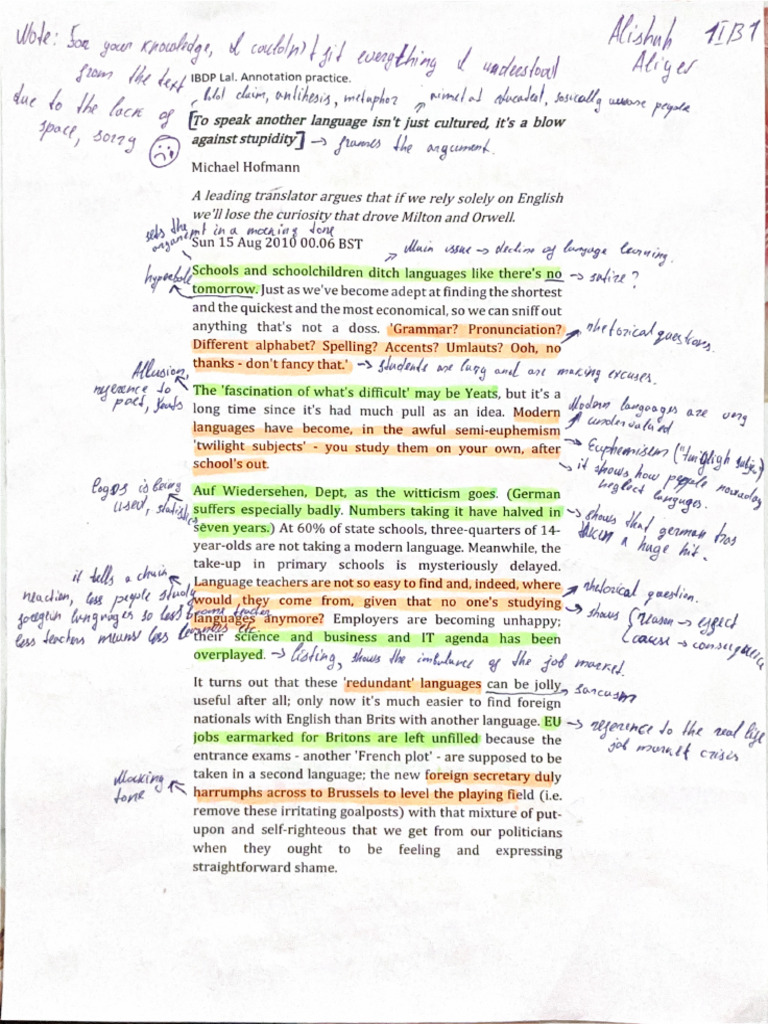 Note: For your knowledge, I couldn't fit everything I understood
from the text
due to the lack of
space, sorry
Alishah 11IB1
Aliyev
IBDP Lal. Annotation practice.
claim, antithesis, metaphor
aimed at educated, socially aware people
[To speak another language isn't just cultured, it's a blow
against stupidity] → frames the argument.
Michael Hofmann
A leading translator argues that if we rely solely on English
we'll lose the curiosity that drove Milton and Orwell.
sets the argument in a mocking tone
Sun 15 Aug 2010 00.06 BST
Main issue → decline of language learning.
hyperbole
Schools and schoolchildren ditch languages like there's no → satire?
tomorrow. Just as we've become adept at finding the shortest
and the quickest and the most economical, so we can sniff out
anything that's not a doss. 'Grammar? Pronunciation?
rhetorical questions.
Different alphabet? Spelling? Accents? Umlauts? Ooh, no
thanks - don't fancy that.' → students are lazy and are making excuses.
Allusion,
reference to
poet, Yeats
The 'fascination of what's difficult' may be Yeats, but it's a
long time since it's had much pull as an idea. Modern
languages have become, in the awful semi-euphemism
'twilight subjects' - you study them on your own, after
school's out.
Modern languages are very
undervalued
Euphemism ("twilight subject")
it shows how people nowadays
neglect languages.
logos is being
used, statistics
Auf Wiedersehen, Dept, as the witticism goes. (German
suffers especially badly. Numbers taking it have halved in
seven years.) At 60% of state schools, three-quarters of 14-
year-olds are not taking a modern language. Meanwhile, the
take-up in primary schools is mysteriously delayed.
Language teachers are not so easy to find and, indeed, where
would they come from, given that no one's studying
languages anymore? Employers are becoming unhappy;
their science and business and IT agenda has been
overplayed. → listing, shows the imbalance of the job market.
shows that german has
taken a huge hit.
it tells a chain
reaction, less people study
foreign languages so less become teacher
less teachers means less learners etc.
rhetorical question.
shows { reason → effect
cause → consequence
It turns out that these 'redundant' languages can be jolly
sarcasm
useful after all; only now it's much easier to find foreign
nationals with English than Brits with another language. EU
jobs earmarked for Britons are left unfilled because the
entrance exams - another 'French plot' - are supposed to be
taken in a second language; the new foreign secretary duly
harrumphs across to Brussels to level the playing field (i.e.
remove these irritating goalposts) with that mixture of put-
upon and self-righteous that we get from our politicians
when they ought to be feeling and expressing
straightforward shame.
reference to the real life
job market crisis
Mocking
tone